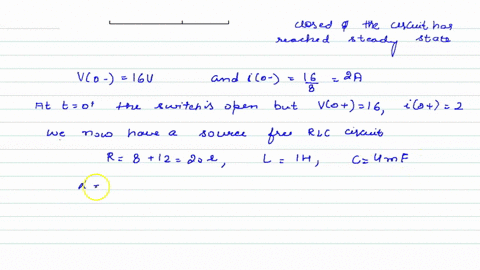 closed & the circuit has
reached steady state
V(0-) = 16V and i(0-) = 16/8 = 2A
At t=0' the switch is open but V(0+)=16, i(0+)=2
We now have a source free RLC circuit
R = 8+12 = 20Ω, L = 1H, C = 4mF
α =